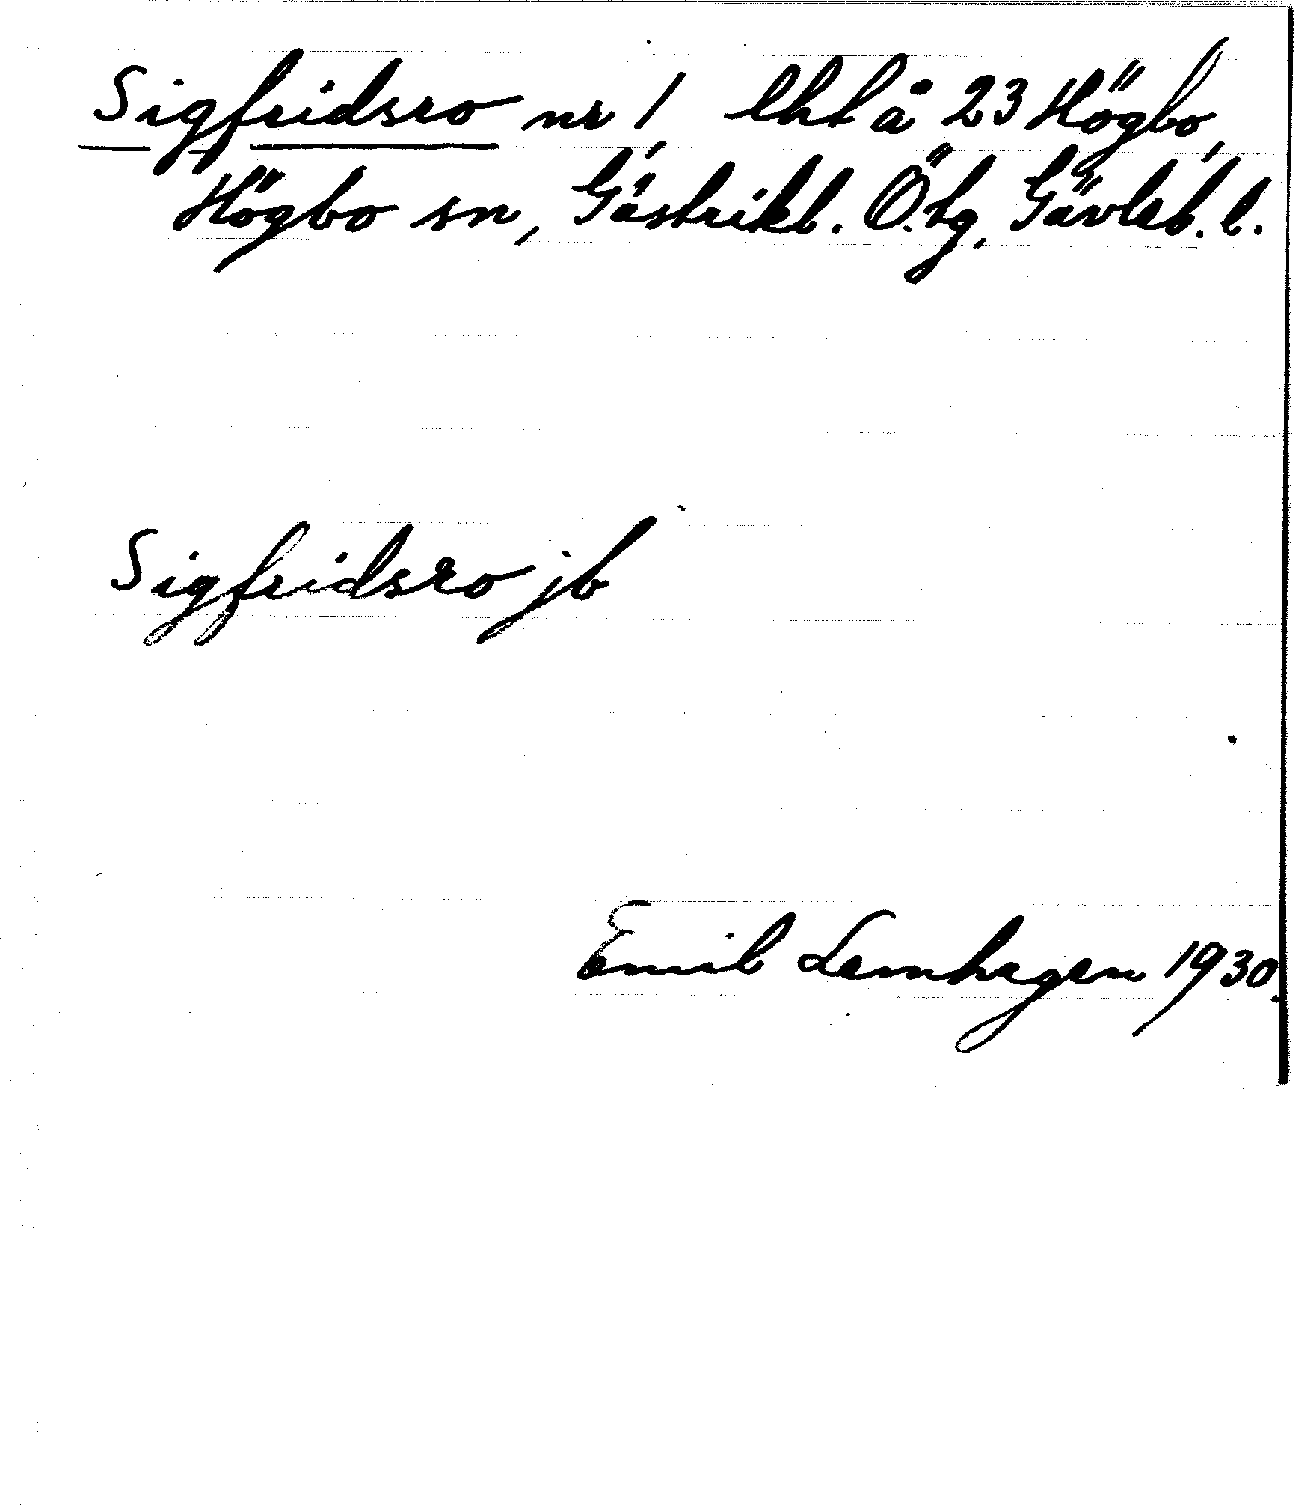 Sigfridsro nr 1, lht å 23 Högbo,
Högbo sn, Gästrikl. Ö. tg, Gävleb. l.
Sigfridsro jb
Emil Lemhagen 1930.